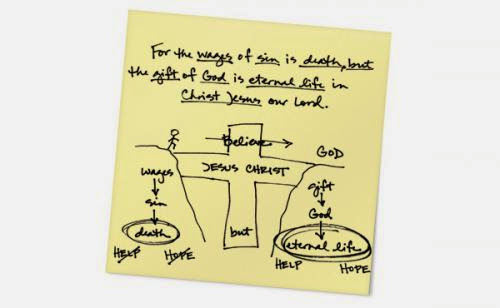 For the wages of sin is death, but
the gift of God is eternal life in
Christ Jesus our Lord.
Believe
GOD
JESUS CHRIST
wages
gift
sin
God
death
but
eternal life
HELP HOPE
HELP HOPE